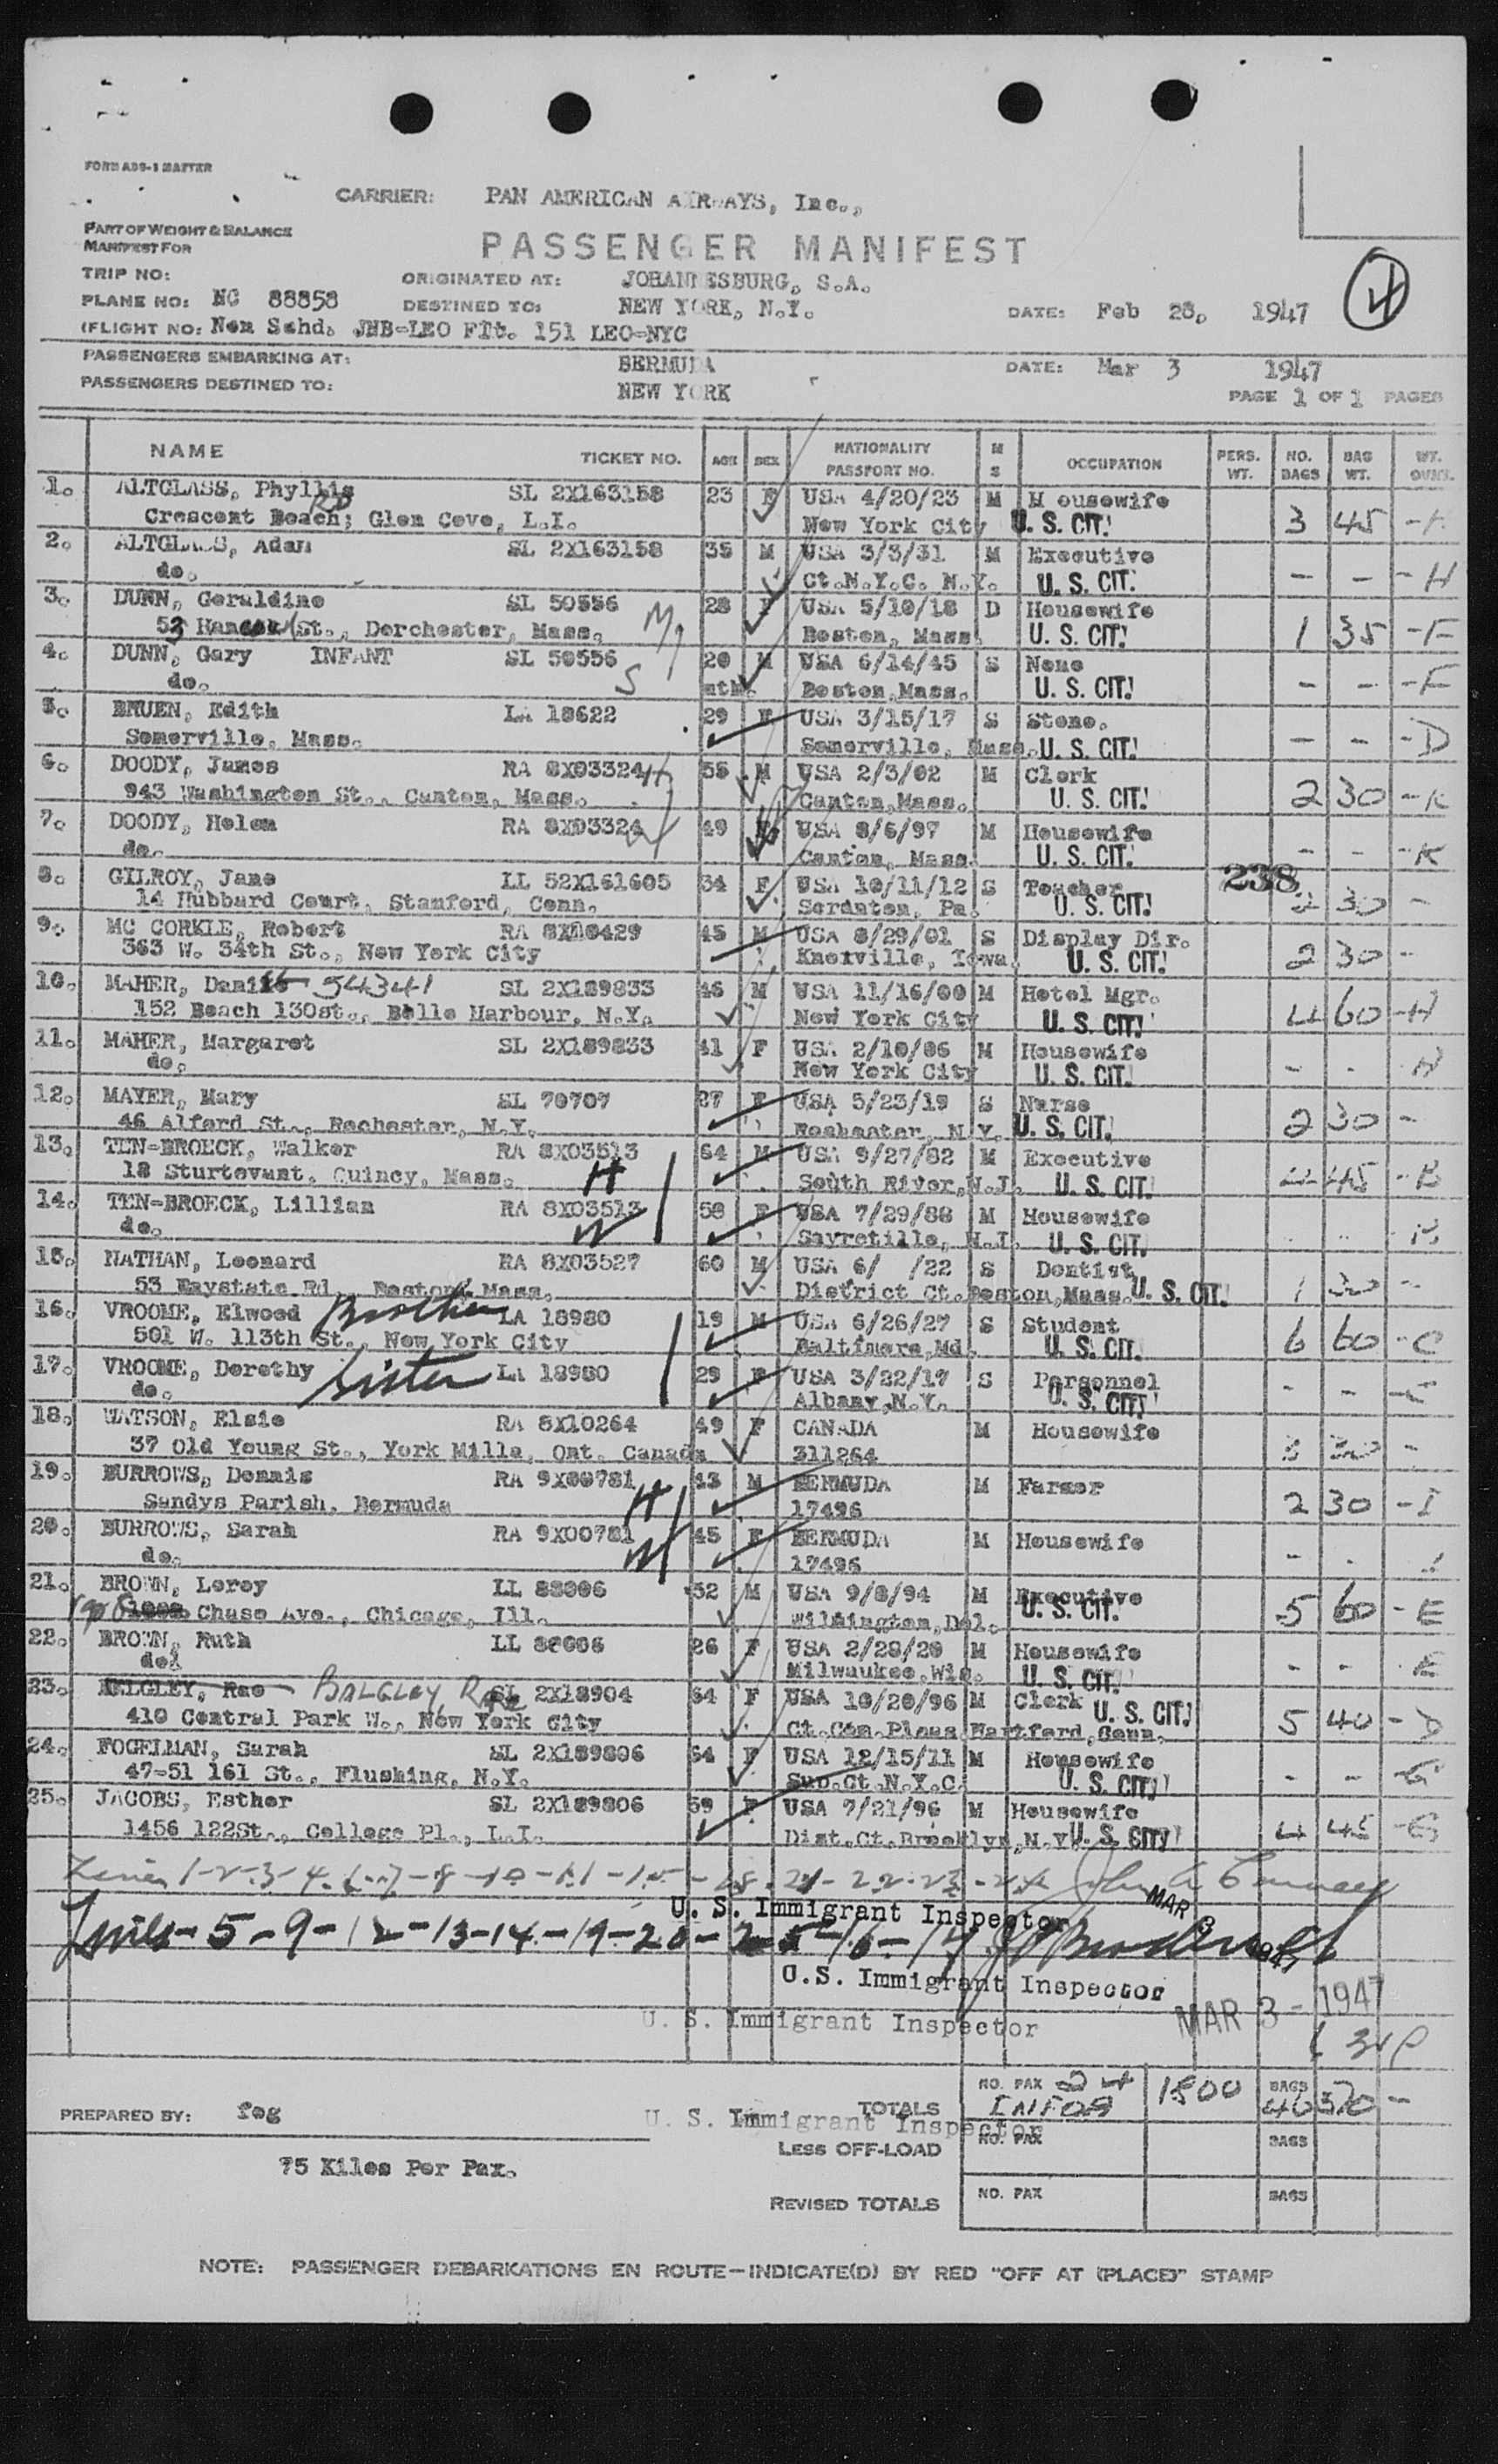 FORM ADS-1 MASTER
CARRIER: PAN AMERICAN AIRWAYS, Inc.,
PART OF WEIGHT & BALANCE
MANIFEST FOR
PASSENGER MANIFEST
TRIP NO: ORIGINATED AT: JOHANNESBURG, S.A.
PLANE NO: NC 88858 DESTINED TO: NEW YORK, N.Y. DATE: Feb 28, 1947
FLIGHT NO: Non Schd. JNB-LEO Flt. 151 LEO-NYC
PASSENGERS EMBARKING AT: BERMUDA DATE: Mar 3 1947
PASSENGERS DESTINED TO: NEW YORK
PAGE 1 OF 1 PAGES
NAME TICKET NO. AGE SEX NATIONALITY PASSPORT NO. M S OCCUPATION PERS. WT. NO. BAGS BAG WT. WT.
1. ALTGLASS, Phyllis SL 2X163158 23 F USA 4/20/23 M Housewife
Crescent Beach RD; Glen Cove, L.I. New York City U. S. CIT. 3 45 -H
2. ALTGLASS, Adam SL 2X163158 35 M USA 3/3/31 M Executive
do. Ct.N.Y.C. N.Y. U. S. CIT. - - -H
3. DUNN, Geraldine SL 50556 M 28 F USA 5/10/18 D Housewife
53 Hancock St., Dorchester, Mass. Boston, Mass. U. S. CIT. 1 35 -F
4. DUNN, Gary INFANT SL 50556 S 20 M USA 6/14/45 S None
do. mth. Boston,Mass. U. S. CIT. - - -F
5. BRUEN, Edith LA 18622 29 F USA 3/15/17 S Steno.
Somerville, Mass. Somerville, Mass. U. S. CIT. - - -D
6. DOODY, James RA 8X03324 H 55 M USA 2/3/02 M Clerk
943 Washington St., Canton, Mass. Canton,Mass. U. S. CIT. 2 30 -K
7. DOODY, Helen RA 8X03324 W 49 F USA 8/6/97 M Housewife
do. Canton, Mass. U. S. CIT. - - -K
8. GILROY, Jane LL 52X161605 34 F USA 10/11/12 S Teacher 238
14 Hubbard Court, Stamford, Conn. Scranton, Pa. U. S. CIT. 2 30 -
9. MC CORKLE, Robert RA 8X10429 45 M USA 8/29/01 S Display Dir.
363 W. 34th St., New York City Knoxville, Iowa U. S. CIT. 2 30 -
10. MAHER, Daniel 54341 SL 2X189833 46 M USA 11/16/00 M Hotel Mgr.
152 Beach 130st., Belle Harbour, N.Y. New York City U. S. CIT. 4 60 -H
11. MAHER, Margaret SL 2X189833 41 F USA 2/10/06 M Housewife
do. New York City U. S. CIT. - - H
12. MAYER, Mary SL 70707 27 F USA 5/23/19 S Nurse
46 Alford St., Rochester, N.Y. Rochester, N.Y. U. S. CIT. 2 30 -
13. TEN-BROECK, Walker RA 8X03513 64 M USA 9/27/82 M Executive
18 Sturtevant, Quincy, Mass. H South River,N.J. U. S. CIT. 4 45 -B
14. TEN-BROECK, Lillian RA 8X03513 58 F USA 7/29/88 M Housewife
do. W Sayretille, N.J. U. S. CIT. B
15. NATHAN, Leonard RA 8X03527 60 M USA 6/ /22 S Dentist
53 Baystate Rd., Boston, Mass. District Ct.Boston,Mass. U. S. CIT. 1 30 -
16. VROOME, Elwood Brother LA 18980 19 M USA 6/26/27 S Student
501 W. 113th St., New York City Baltimore,Md. U. S. CIT. 6 60 -C
17. VROOME, Dorothy Sister LA 18980 29 F USA 3/22/17 S Personnel
do. Albany,N.Y. U. S. CIT. - - -C
18. WATSON, Elsie RA 8X10264 49 F CANADA M Housewife
37 Old Young St., York Mills, Ont. Canada 311264 3 30 -
19. BURROWS, Dennis RA 9X00781 H 43 M BERMUDA M Farmer
Sandys Parish, Bermuda 17496 2 30 -I
20. BURROWS, Sarah RA 9X00781 W 45 F BERMUDA M Housewife
do. 17496 - -
21. BROWN, Leroy LL 88006 52 M USA 9/8/94 M Executive
Chase Ave., Chicago, Ill. Wilmington,Del. U. S. CIT. 5 60 -E
22. BROWN, Ruth LL 88006 26 F USA 2/28/20 M Housewife
do. Milwaukee,Wis. U. S. CIT. - - E
23. BELGLEY, Rae BALGLEY, Rae SL 2X18904 64 F USA 10/20/96 M Clerk U. S. CIT.
410 Central Park W., New York City Ct.Com.Pleas Hartford,Conn. 5 40 -D
24. FOGELMAN, Sarah SL 2X189806 64 F USA 12/15/11 M Housewife
47-51 161 St., Flushing, N.Y. Sup.Ct.N.Y.C. U. S. CIT. - - -G
25. JACOBS, Esther SL 2X189806 59 F USA 7/21/96 M Housewife
1456 122St., College Pl., L.I. Dist.Ct.Brooklyn,N.Y. U. S. CIT. 4 45 -G
Lines 1-2-3-4-6-7-8-10-11-15-18-21-22-23-24 John A
U. S. Immigrant Inspector MAR 3 1947
Lines-5-9-12-13-14-19-20-25-16-17
U.S. Immigrant Inspector
U. S. Immigrant Inspector MAR 3 - 1947
PREPARED BY: fog
U. S. Immigrant Inspector
TOTALS NO. PAX 24 1800 BAGS 40 570 -
LESS OFF-LOAD NO. PAX BAGS
75 Kilos Per Pax.
REVISED TOTALS NO. PAX BAGS
NOTE: PASSENGER DEBARKATIONS EN ROUTE-INDICATE(D) BY RED "OFF AT (PLACE)" STAMP